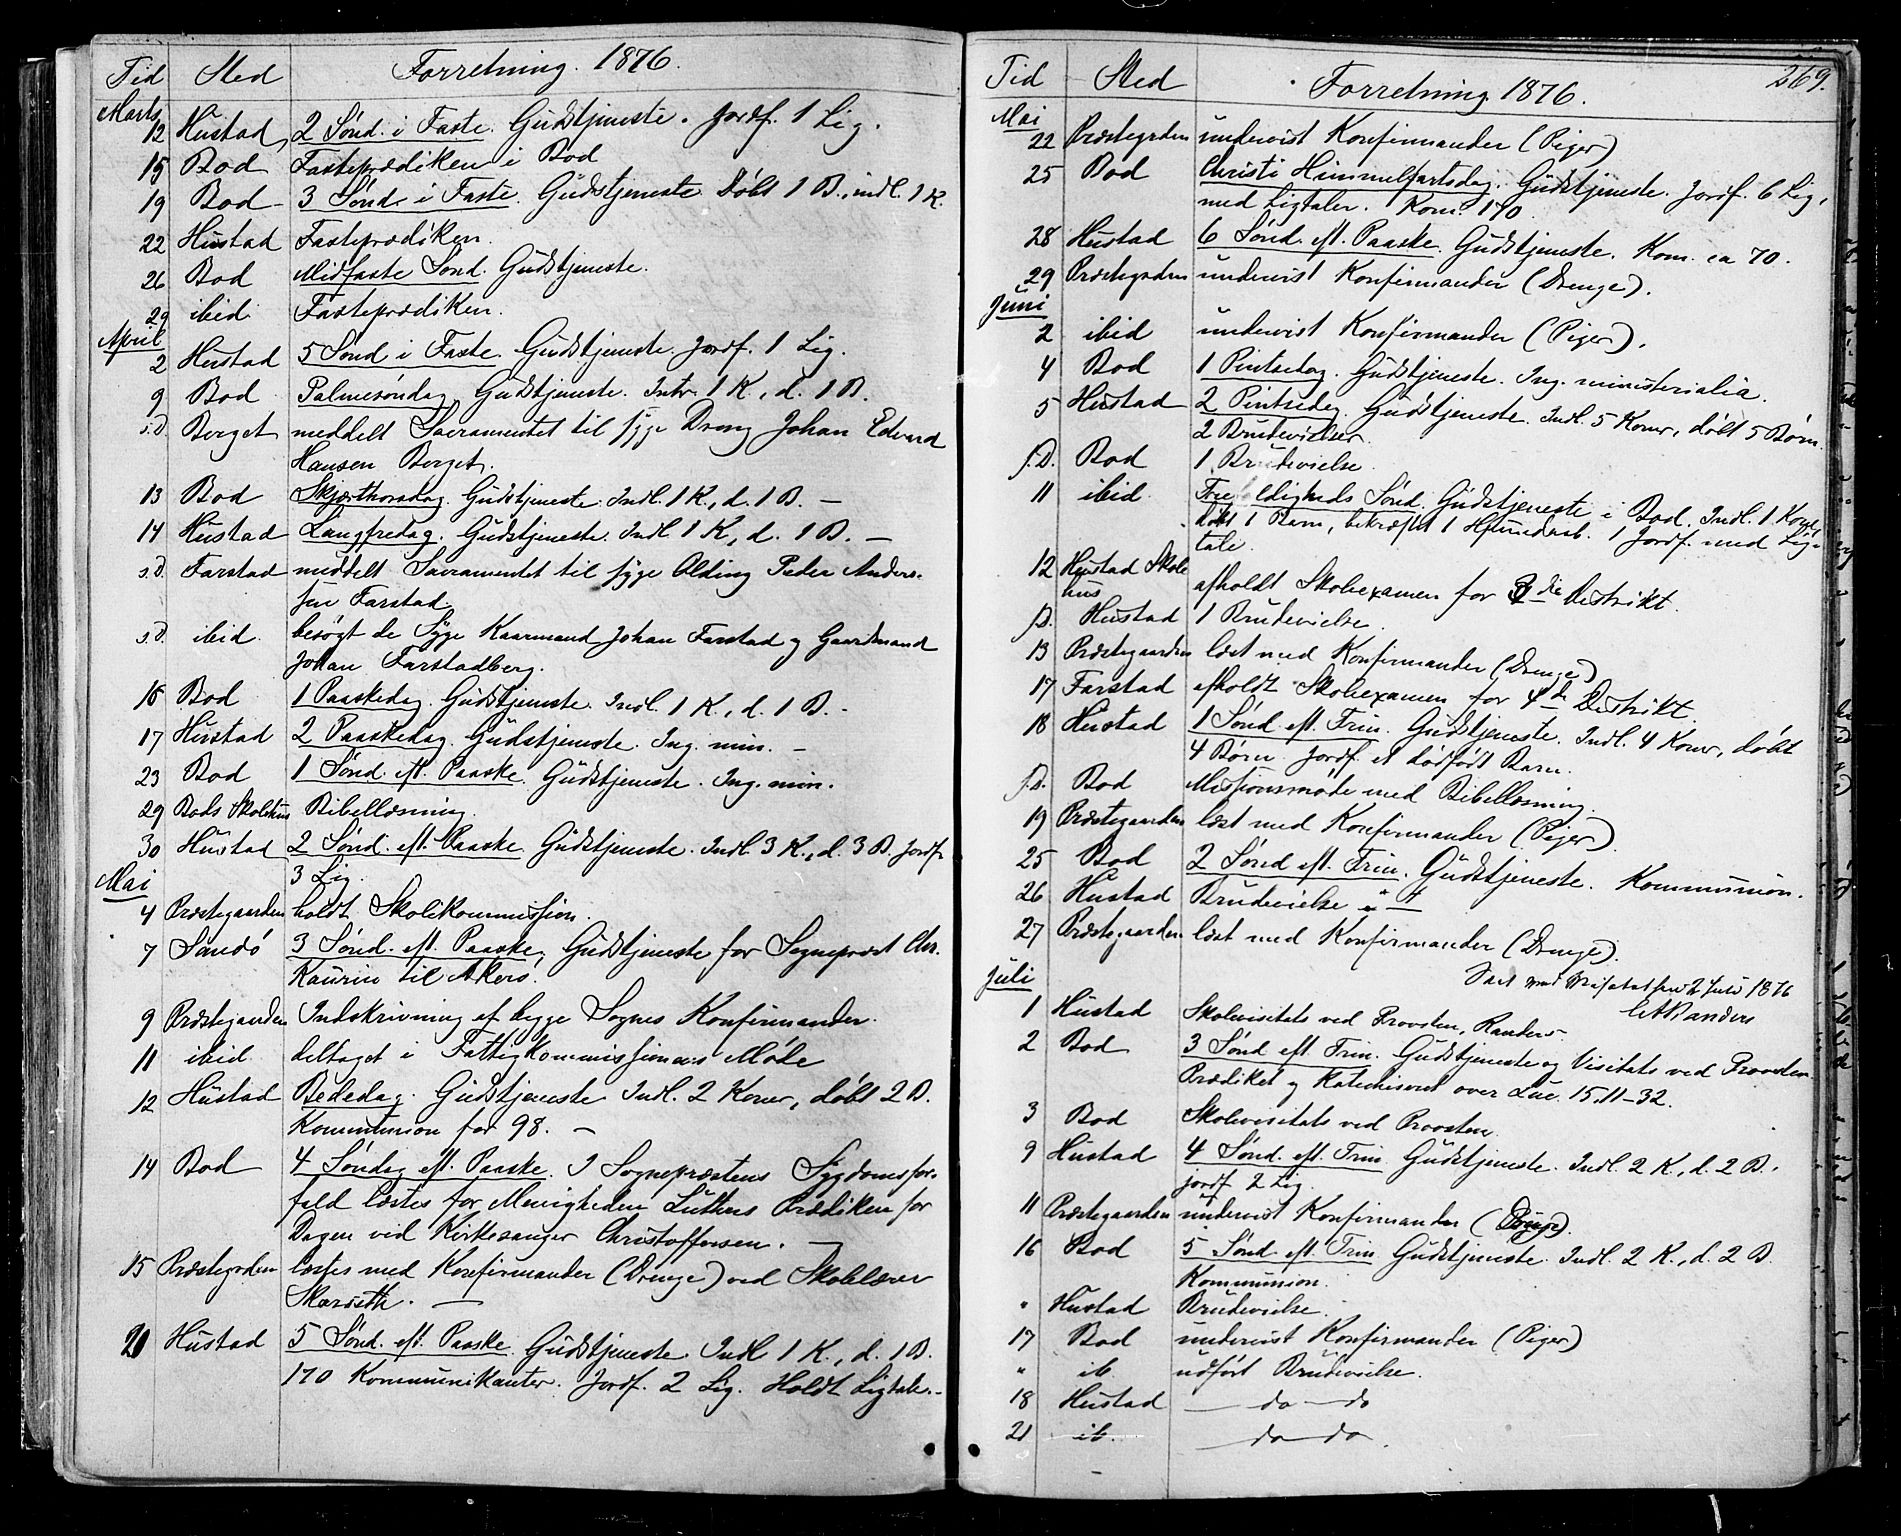 Tid Sted Forretning. 1876.
Marts
12 Hustad 2 Sönd. i Faste. Gudstjeneste. Jordf. 1 Lig.
15 Bod Fasteprædiken i Bod
19 Bod 3 Sönd. i Faste. Gudstjeneste Döbt 1 B., indl. 1 K.
22 Hustad Fasteprædiken.
26 Bod Midfaste Sönd. Gudstjeneste.
29 ibid. Fasteprædiken.
April
2 Hustad 5 Sönd i Faste. Gudstjeneste. Jordf. 1 Lig.
9 Bod Palmesöndag. Gudstjeneste. Intr. 1 K., d. 1 B.
s.D. Berget meddelt Sacramentet til syge Dreng Johan Edvard
Hansen Berget.
13 Bod Skjærthorsdag. Gudstjeneste. Indl. 1 K., d. 1 B. —
14 Hustad Langfredag. Gudstjeneste. Indl 1 K, d. 1 B. —
s.D. Farstad meddelt Sacramentet til syge Olding Peder Anders-
sen Farstad.
s.D. ibid. besögt de Syge Kaarmand Johan Farstad og Gaardmand
Johan Farstadberg.
16 Bod 1 Paaskedag. Gudstjeneste. Indl. 1 K., d. 1 B. -
17 Hustad 2 Paaskedag. Gudstjeneste. Ing. min. —
23 Bod 1 Sönd. eft. Paaske. Gudstjeneste. Ing. min.
29 Bods Skolehus Bibellæsning.
30 Hustad 2 Sönd. eft. Paaske. Gudstjeneste. Indl. 3 K., d. 3 B. Jordf.
3 Lig.
Mai
4 Præstegaarden holdt Skolekommission.
7 Sandö 3 Sönd. eft. Paaske, Gudstjeneste for Sogneprest Chr.
Kaurin til Akerö.
9 Præstegaarden Indskrivning af begge Sognes Konfirmander.
11 ibid. deltaget i Fattigkommissionens Möde
12 Hustad Bededag. Gudstjeneste Indl. 2 Koner, döbt 2 B.
Kommunion for 98. —
14 Bod 4 Söndag eft. Paaske. I Sogneprestens Sygdomsfor-
fald læstes for Menigheden Luthers Prædiken for
Dagen ved Kirkesanger Christoffersen. —
15 Præstegrden læstes med Konfirmander (Drenge) ved Skolelærer
Skarseth. —
21 Hustad 5 Sönd. eft. Paaske. Gudstjeneste. Indl 1 K., d. 1 B.
170 Kommunikanter. Jordf. 2 Lig. Holdt Ligtale. -
269.
Tid Sted Forretning 1876.
Mai
22 Præstegrden undervist Konfirmander (Piger)
25 Bod Christi Himmelfartsdag. Gudstjeneste. Jordf. 6 Lig,
med Ligtaler. Kom. 170.
28 Hustad 6 Sönd. eft. Paaske. Gudstjeneste. Kom. ca 70.
29 Præstegrden undervist Konfirmander (Drenge).
Juni
2 ibid undervist Konfirmander (Piger).
4 Bod 1 Pintsedag. Gudstjeneste. Ing. ministerialia.
5 Hustad 2 Pintsedag. Gudstjeneste. Indl. 5 Koner, döbt 5 Börn.
2 Brudevielser.
s.D. Bod 1 Brudevielse.
11 ibid. Trefoldigheds Sönd. Gudstjeneste i Bod. Indl. 1 Kone,
döbt 1 Barn, bekræftet 1 Hjemedaab. 1 Jordf. med Lig-
tale.
12 Hustad Skole
hus afholdt Skoleexamen for 3die Distrikt.
s.D. Hustad 1 Brudevielse.
13 Præstegaarden læst med Konfirmander (Drenge)
17 Farstad afholdt Skoleexamen for 4de Distrikt.
18 Hustad 1 Sönd. eft. Trin. Gudstjeneste. Indl. 4 Koner, döbt
4 Börn. Jordf. et dödfödt Barn.
s.D. Bod Missionsmöde med Bibellæsning.
19 Præstegaarden læst med Konfirmander (Piger)
25 Bod 2 Sönd eft. Trin. Gudstjeneste. Kommunion.
26 Hustad Brudevielse
27 Præstegaarden læst med Konfirmander (Drenge).
Seet ved Visitatsen 2 Juli 1876
Randers
Juli
1 Hustad Skolevisitats ved Provsten, Randers.
2 Bod 3 Sönd eft Trin. Gudstjeneste og Visitats ved Provsten.
Prædiket og Katechiseret over Luc. 15, 11-32.
3 Bod Skolevisitats ved Provsten
9 Hustad 4 Sönd. eft. Trin Gudstjeneste. Indl. 2 K., d. 2 B.,
jordf 2 Lig.
11 Præstegaarden undervist Konfirmander (Drenge).
16 Bod 5 Sönd. eft. Trin Gudstjeneste. Indl. 2 K., d. 2 B.
Kommunion.
" Hustad Brudevielse.
17 Bod undervist Konfirmander (Piger)
" ib udfört Brudevielse.
18 Hustad — do — do
21 ib. — do — do.